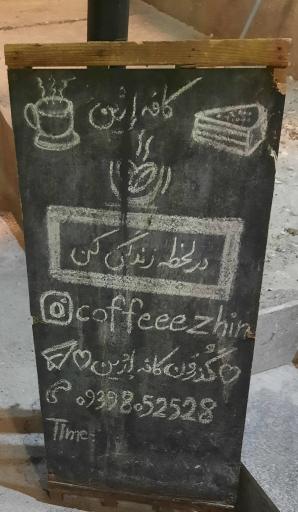 کافه اژین
در لحظه زندگی کن
coffeeezhin
گذرون کافه اژین
09398052528
TIme: